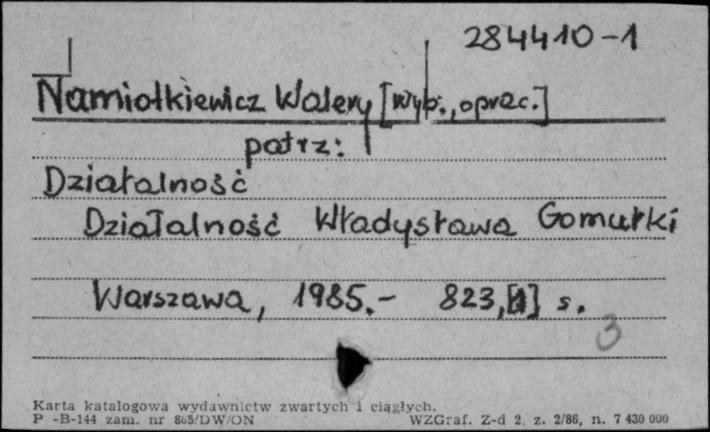 284410-1
Namiołkiewicz Walery [wyb., oprac.]
patrz:
Działalność
Działalność Władysława Gomułki
Warszawa, 1985.- 823,[1] s.
3
Karta katalogowa wydawnictw zwartych i ciągłych.
P -B-144 zam. nr 865/DW/ON WZGraf. Z-d 2. z. 2/86, n. 7 430 000